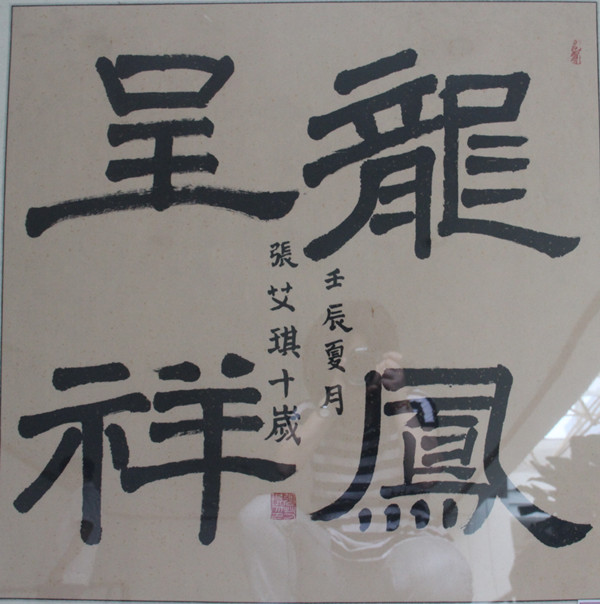 龍鳳
呈祥
壬辰夏月
張艾琪十歲